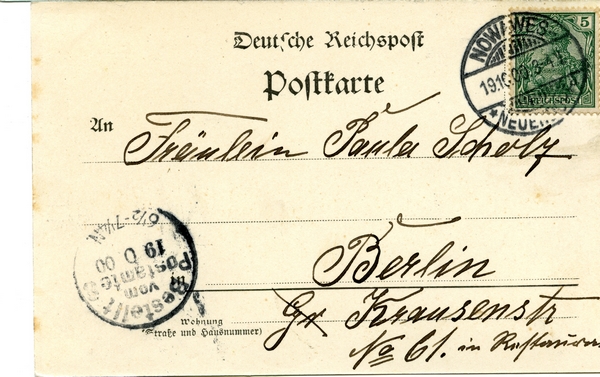 Deutsche Reichspost
Postkarte
NOWAWES
19.10.00
NEUEN
5
REICHSPOST
An
Fräulein Paula Scholz
Berlin
Gr Krausenstr
No 61. in Restaura
Wohnung
(Straße und Hausnummer)
Bestellt
vom
Postamte
19 00
6½-7¼N.